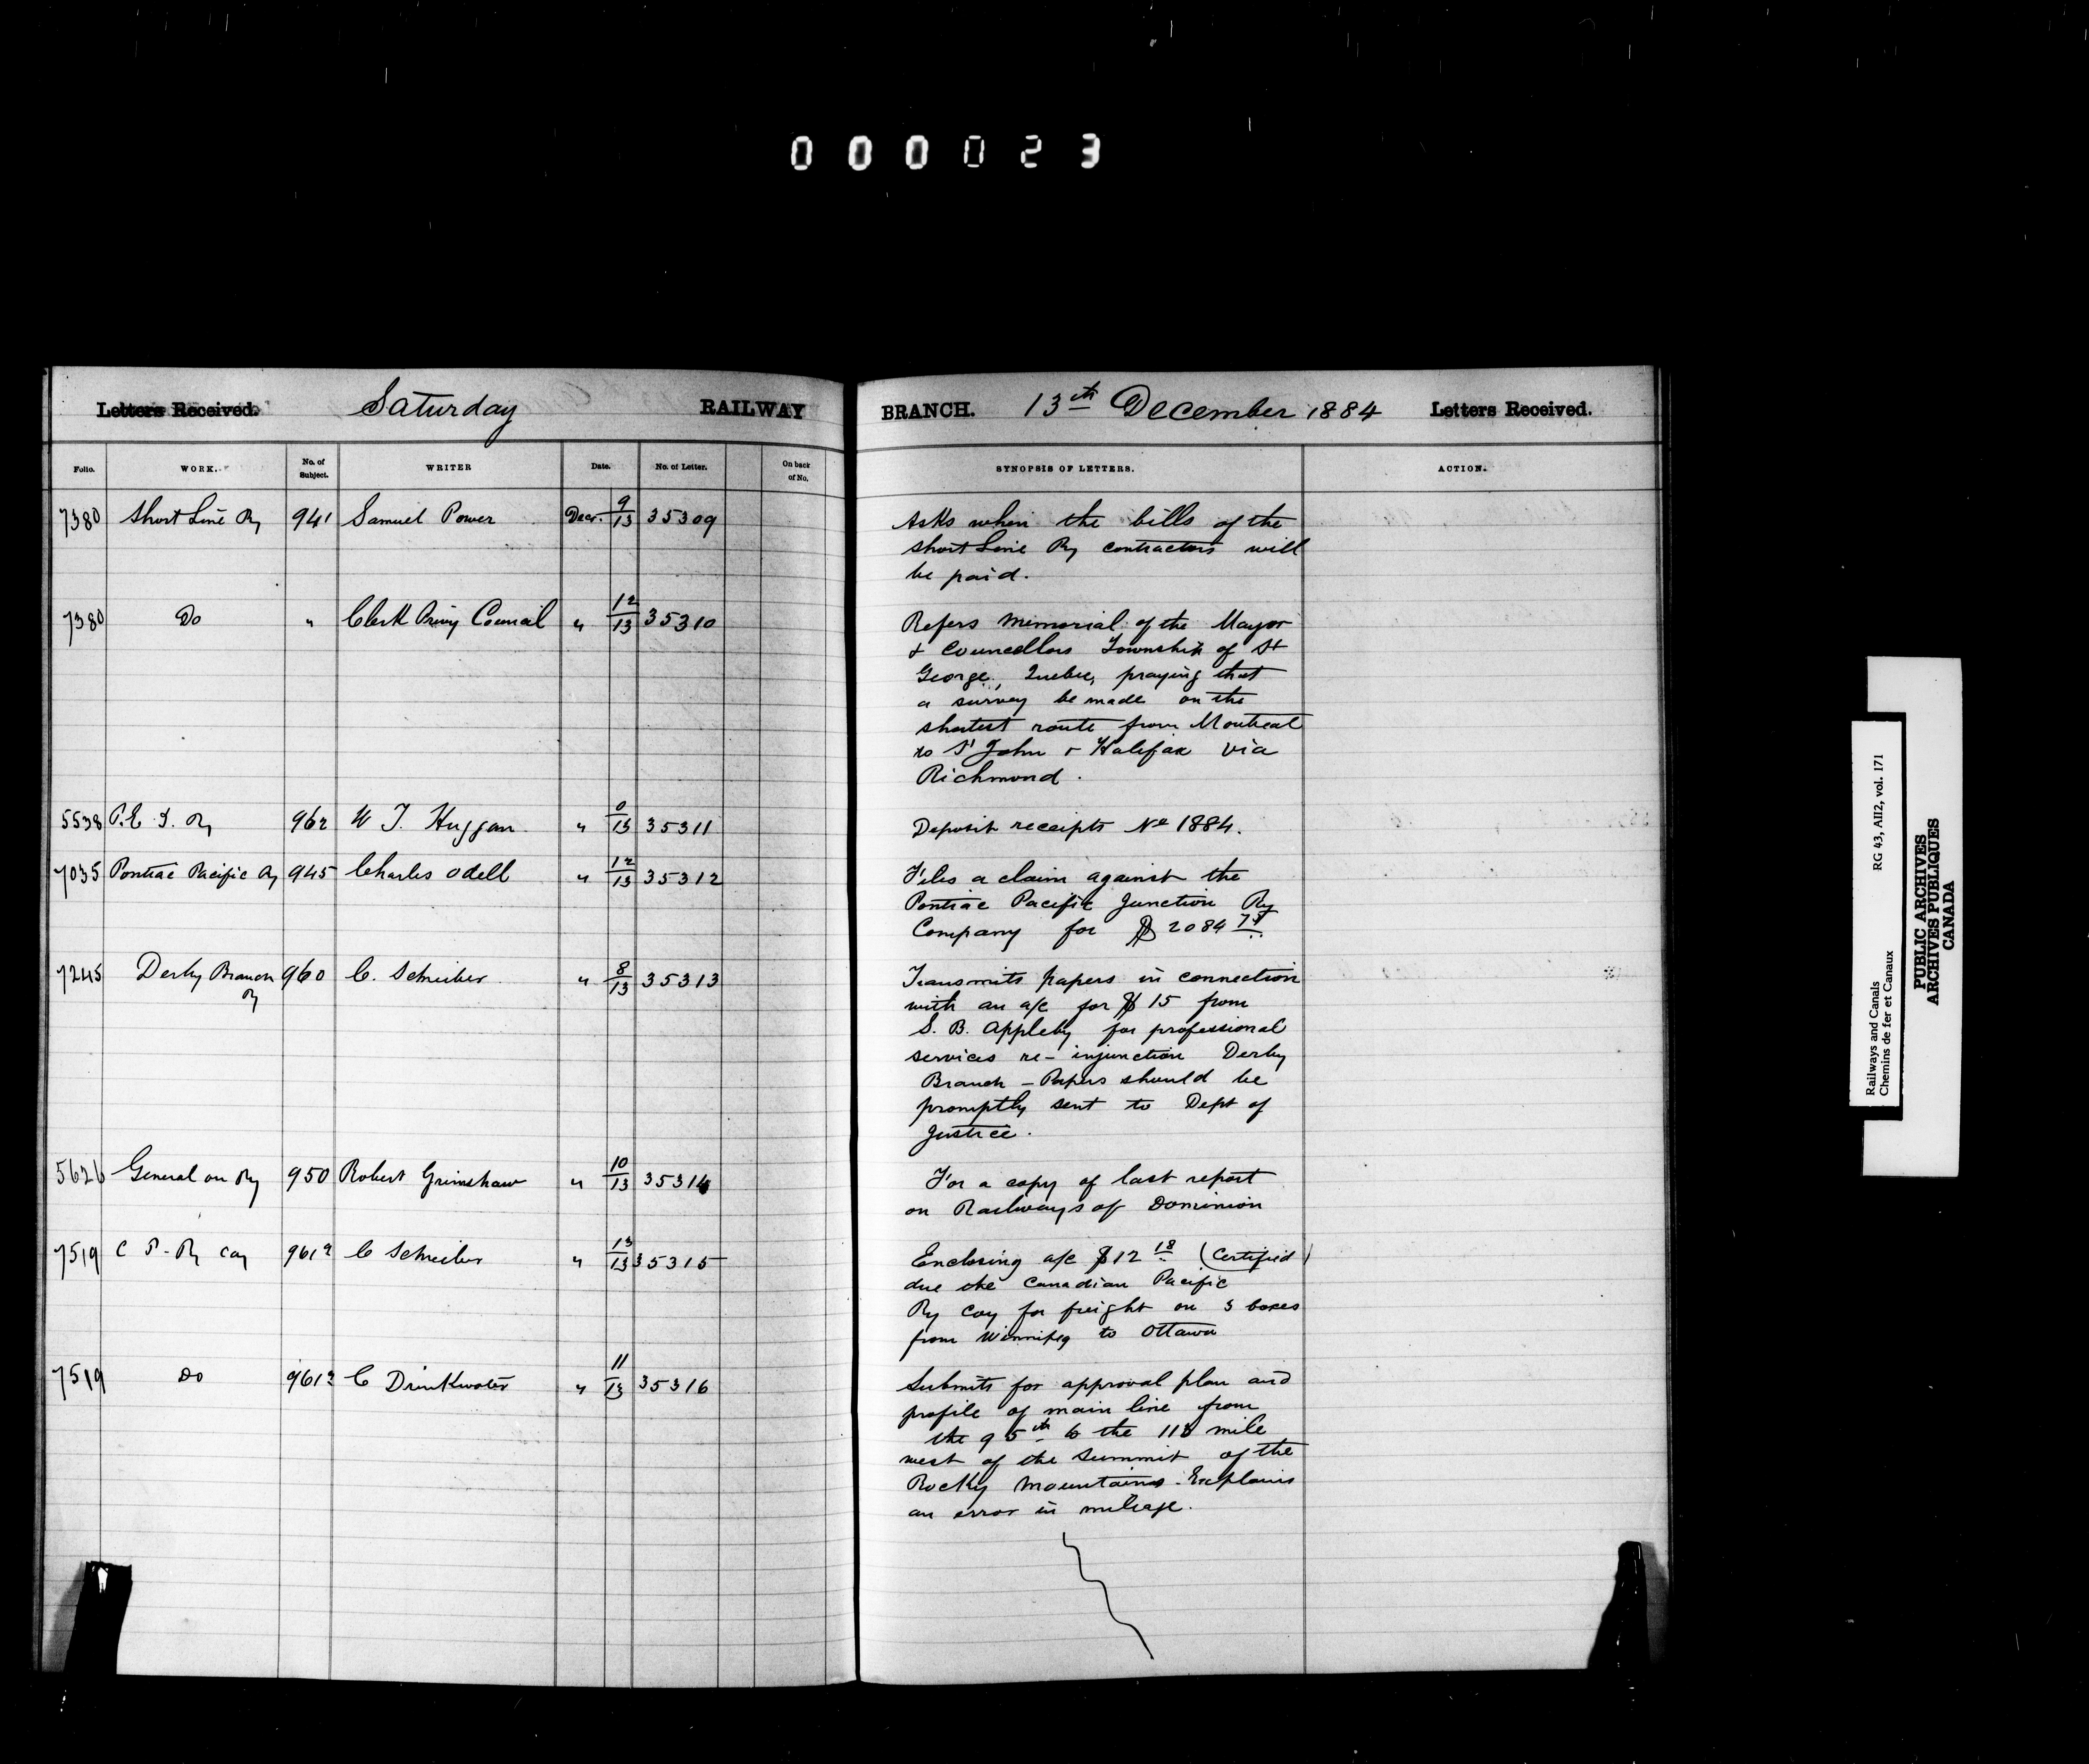 000023
Letters Received. Saturday RAILWAY BRANCH. 13th December 1884 Letters Received.
Folio. WORK. No. of Subject. WRITER Date. No. of Letter. On back of No. SYNOPSIS OF LETTERS. ACTION.
7380 Short Line Ry 941 Samuel Power Decr. 9/13 35309 Asks when the bills of the
Short Line Ry contractors will
be paid.
7380 Do " Clerk Privy Council " 12/13 35310 Refers memorial of the Mayor
& Councellors Township of St
George, Quebec, praying that
a survey be made on the
shortest route from Montreal
to St John & Halifax via
Richmond.
5538 P.E.I. Ry 962 W T. Huggan " 0/13 35311 Deposit receipts No 1884.
7035 Pontiac Pacific Ry 945 Charles Odell " 12/13 35312 Files a claim against the
Pontiac Pacific Junction Ry
Company for $2084 75
7245 Derby Branch Ry 960 C. Schreiber " 8/13 35313 Transmits papers in connection
with an a/c for $15 from
S. B. Appleby for professional
services re- injunction Derby
Branch - Papers should be
promptly sent to Dept of
Justice.
5626 General on Ry 950 Robert Grimshaw " 10/13 35314 For a copy of last report
on Railways of Dominion
7519 C P. Ry Coy 961 2 C Schreiber " 13/13 35315 Enclosing a/c $12 18 (Certified)
due the Canadian Pacific
Ry Coy for freight on 3 boxes
from Winnipeg to Ottawa
7519 Do 961 2 C Drinkwater " 11/13 35316 Submits for approval plan and
profile of main line from
the 95th to the mile
west of the Summit of the
Rocky Mountains - Explains
an error in mileage.
Railways and Canals RG 43, AII2, vol. 171
Chemins de fer et Canaux
PUBLIC ARCHIVES
ARCHIVES PUBLIQUES
CANADA